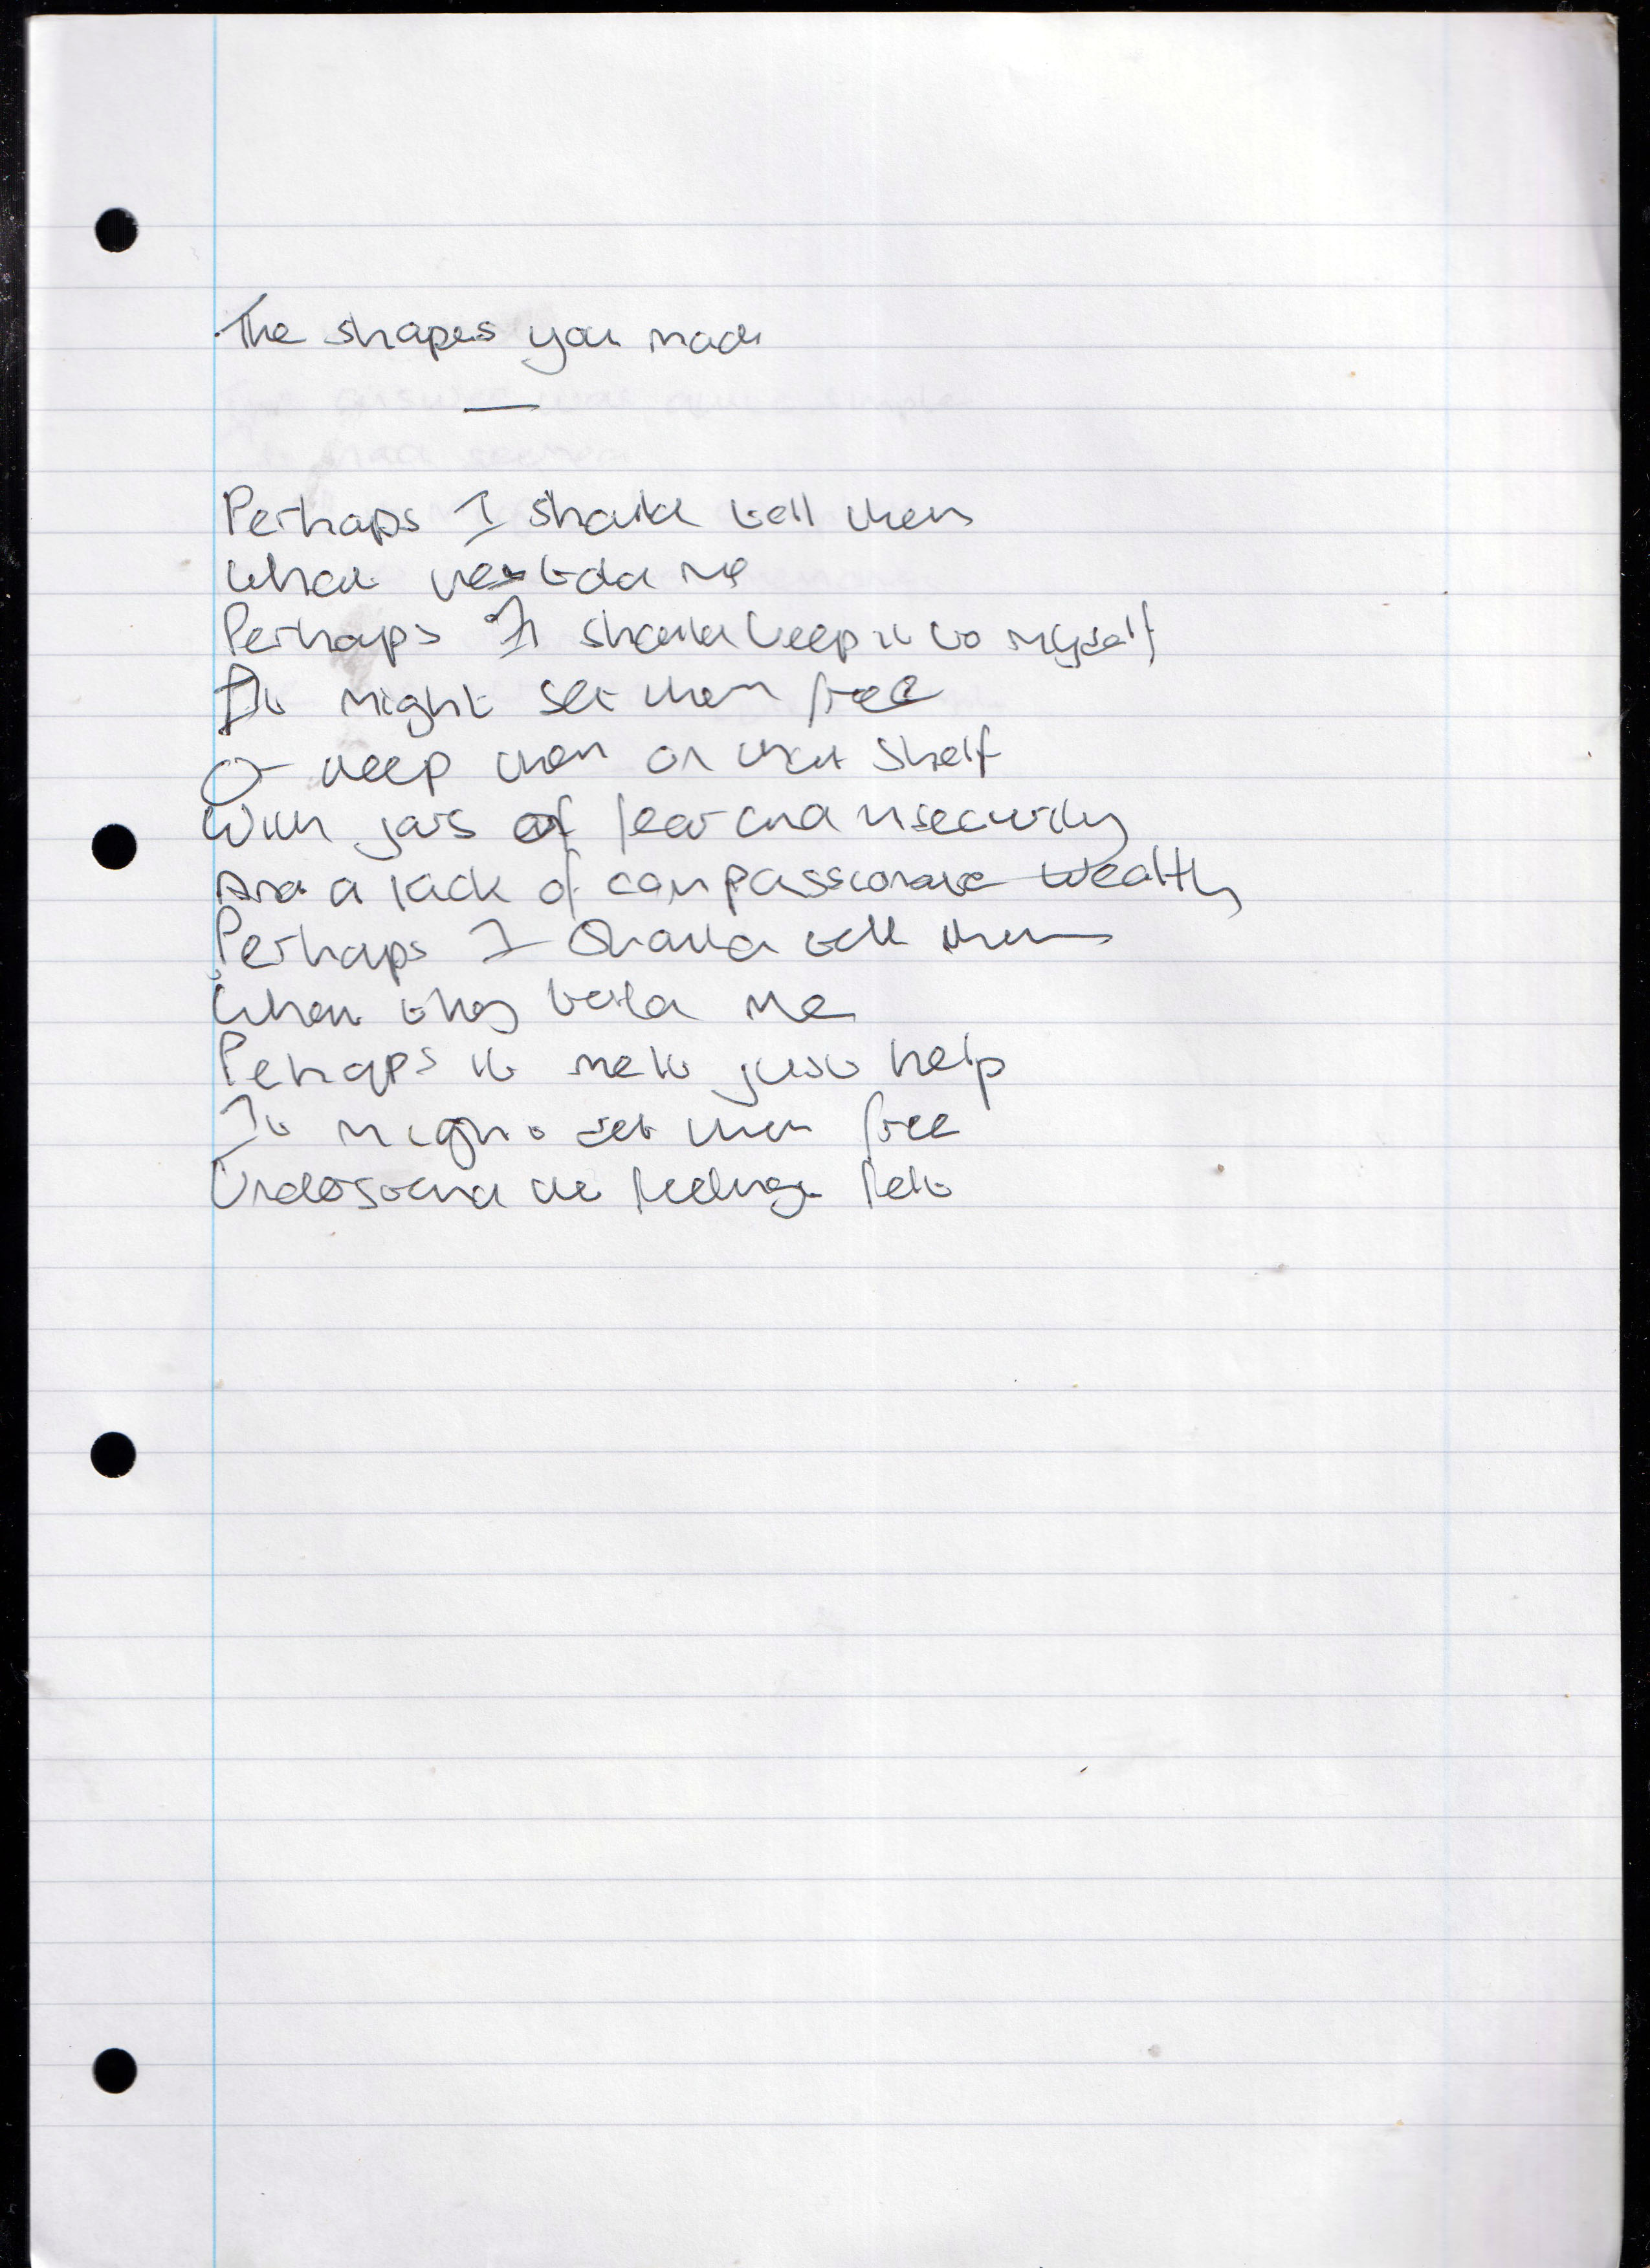 The shapes you made
—
Perhaps I should tell them
What they told me
Perhaps I should keep it to myself
It might set them free
Or keep them on that shelf
With jars of fear and insecurity
And a lack of compassionate wealth
Perhaps I should tell them
What they told me
Perhaps it might just help
It might set them free
Understand the feelings felt